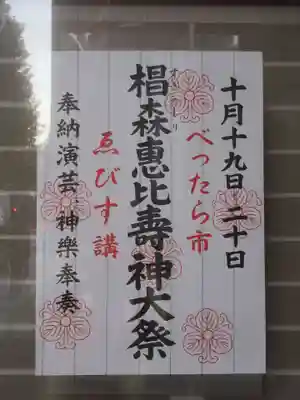 十月十九日・二十日
べったら市
椙森恵比寿神大祭
すぎのもり
ゑびす講
奉納演芸、神樂奉奏